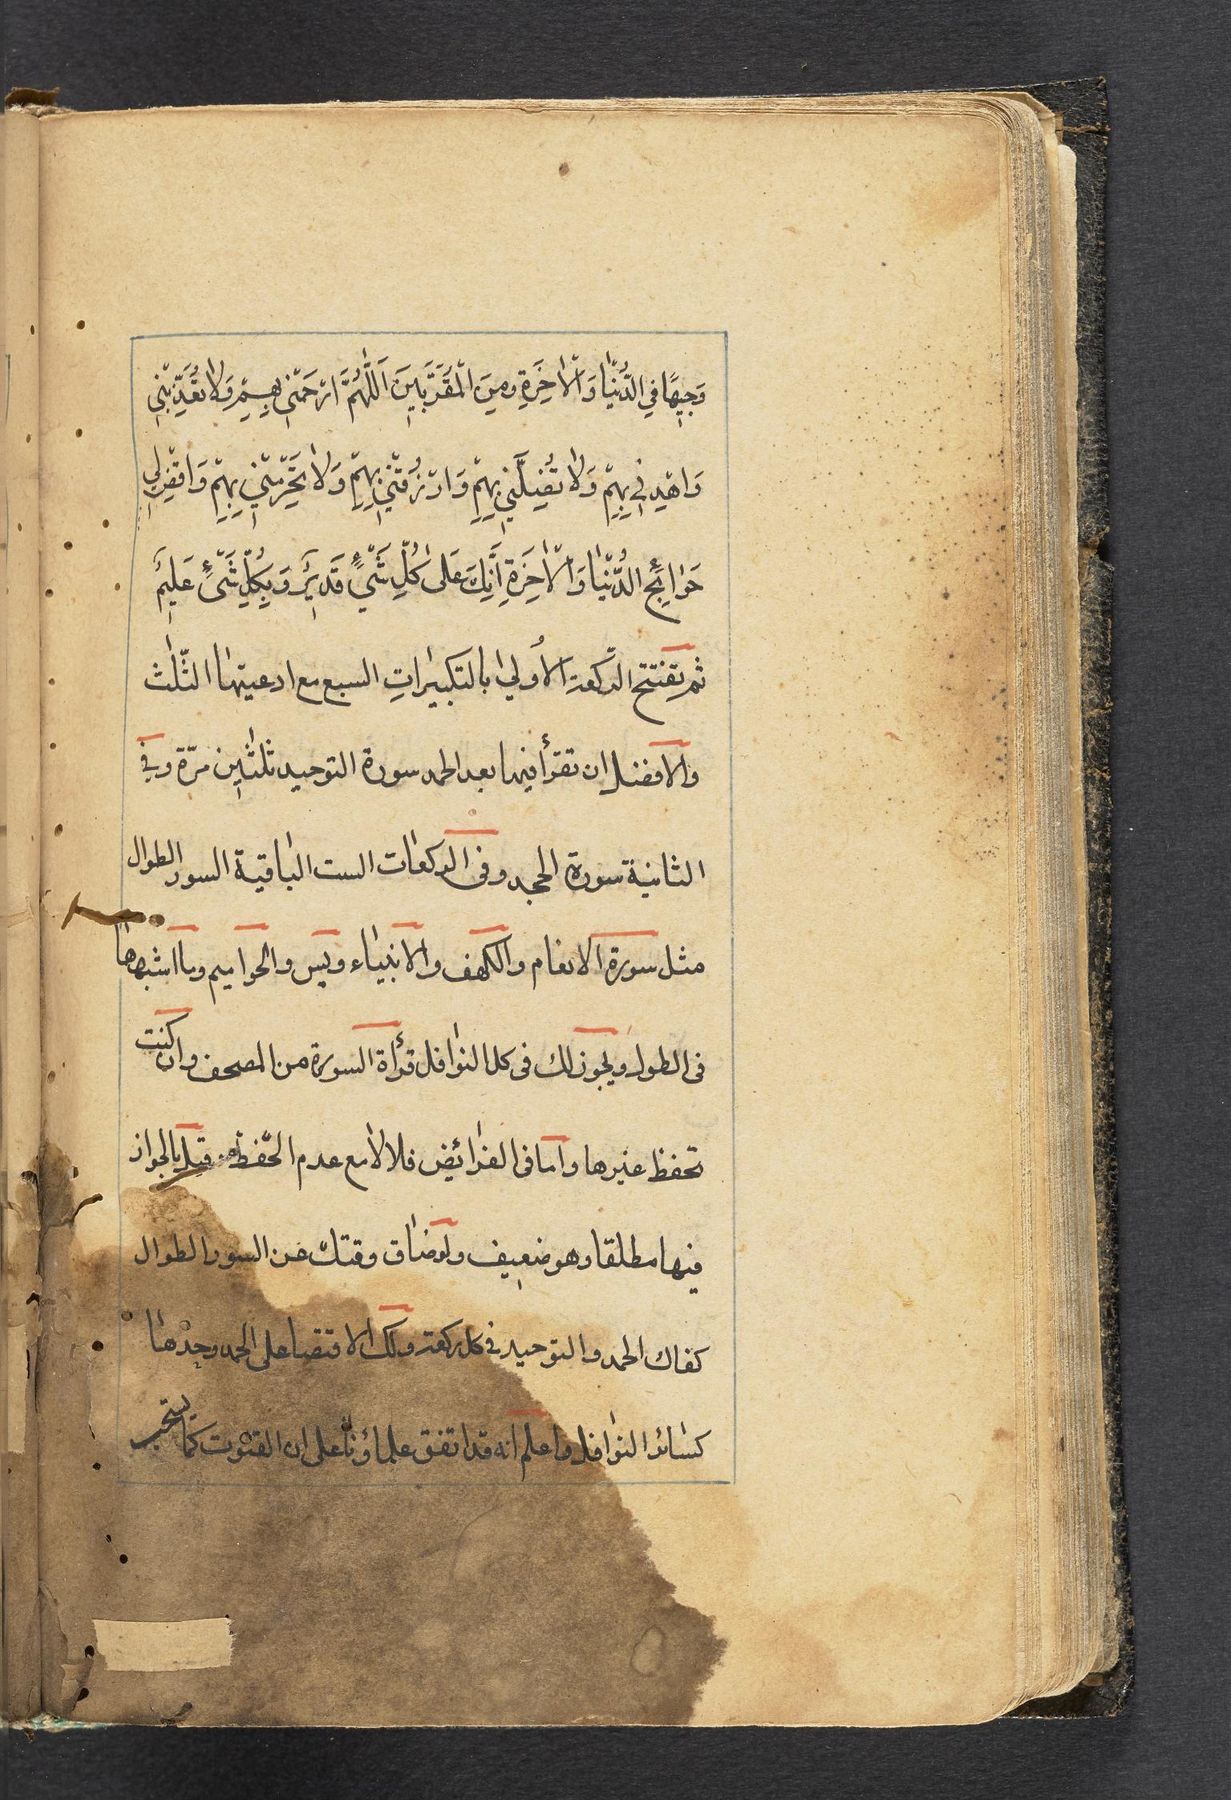 وَجِيهًا فِي الدُّنْيٰا وَالْاٰخِرَةِ وَمِنَ الْمُقَرَّبِينَ اَللّٰهُمَّ ارْحَمْنِي بِهِمْ وَلٰا تُعَذِّبْنِي
وَاهْدِنِي بِهِمْ وَلٰا تُضِلَّنِي بِهِمْ وَارْزُقْنِي بِهِمْ وَلٰا تَحْرِمْنِي بِهِمْ وَاقْضِ لِي
حَوٰائِجَ الدُّنْيٰا وَالْاٰخِرَةِ اِنَّكَ عَلىٰ كُلِّ شَيْءٍ قَدِيرٌ وَبِكُلِّ شَيْءٍ عَلِيمٌ
ثم تفتتح الرّكعة الاُولىٰ بالتكبيرٰاتِ السبع مع ادعيتهٰا الثّلٰث
والافضل ان تقرأ فيها بعد الحمد سورة التوحيد ثلٰثين مرّة وفي
الثانية سورة الجحد وفى الركعات الست البٰاقية السور الطوال
مثل سورة الانعام والكهف والانبيٰاء ويس والحواميم وما اشبهها
فى الطول ويجوز لك فى كل النوٰافل قرأة السورة من المصحف وان كنت
تحفظ غيرها واما فى الفرٰائض فلا الا مع عدم الحفظ وقيل بالجواز
فيها مطلقا وهو ضعيف ولو ضٰاق وقتك عن السور الطوال
كفاك الحمد والتوحيد في كل ركعة ولك الاقتصا على الحمد وحدهٰا
كسٰائر النوٰافل واعلم انه قد اتفق علماؤنٰا على ان القنوت كما يستحب